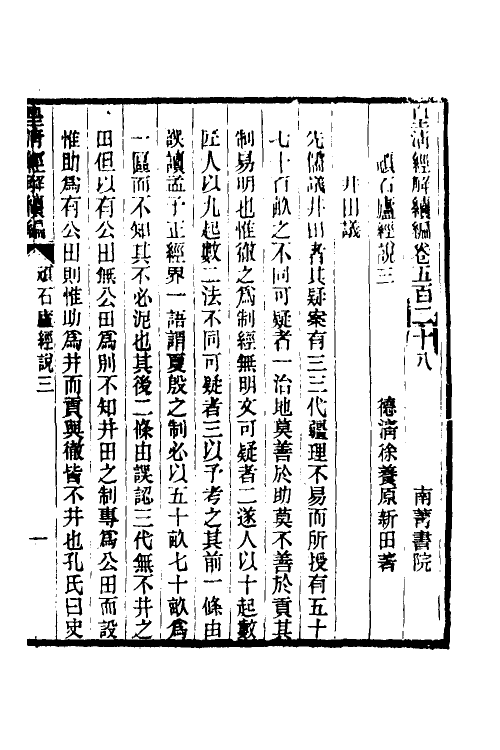 皇淸經解續編卷五百二十八
南菁書院
頑石廬經說三
德淸徐養原新田著
井田議
先儒議井田者其疑案有三三代疆理不易而所授有五十
七十百畝之不同可疑者一治地莫善於助莫不善於貢其
制易明也惟徹之爲制經無明文可疑者二遂人以十起數
匠人以九起數二法不同可疑者三以予考之其前一條由
誤讀孟子正經界一語謂夏殷之制必以五十畝七十畝爲
一區而不知其不必泥也其後二條由誤認三代無不井之
田但以有公田無公田爲別不知井田之制專爲公田而設
惟助爲有公田則惟助爲井而貢與徹皆不井也孔氏曰史
皇淸經解續編
頑石廬經說三
一